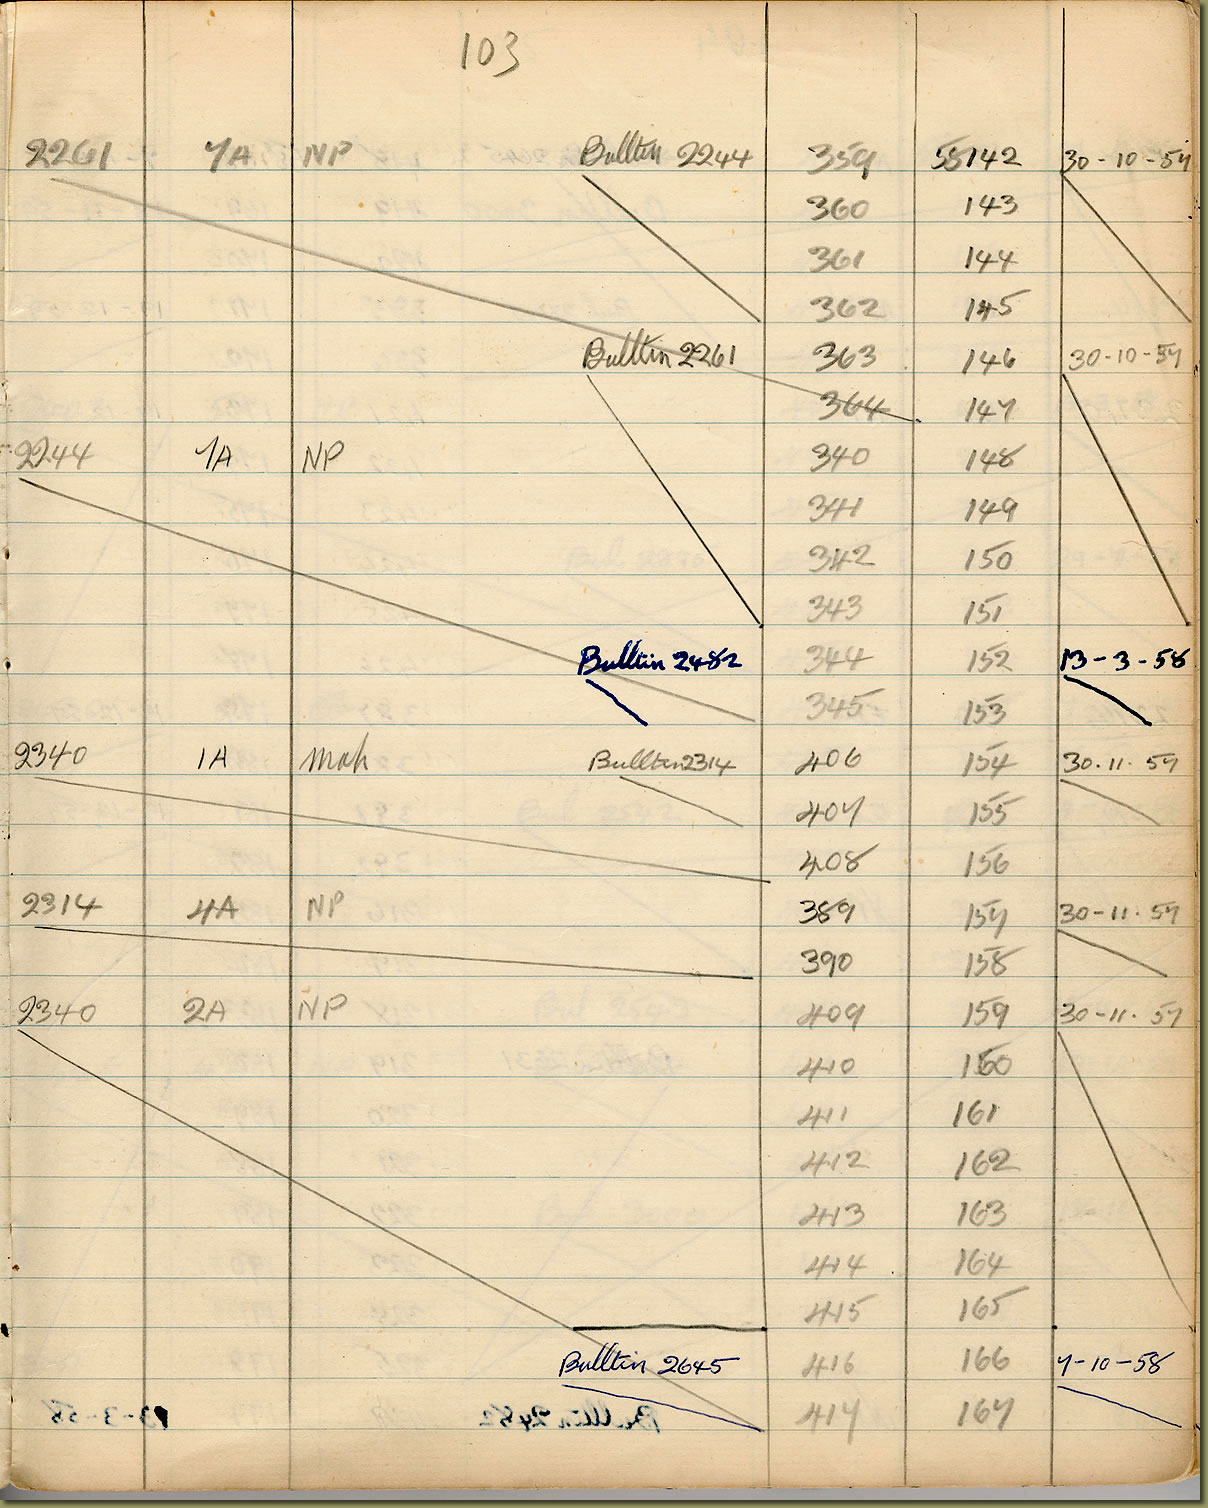 103
2261 7A NP Bulltin 2244 359 55142 30-10-57
360 143
361 144
362 145
Bulltin 2261 363 146 30-10-57
364 147
2244 7A NP 340 148
341 149
342 150
343 151
Bulltin 2482 344 152 13-3-58
345 153
2340 1A Mah Bulltin 2314 406 154 30.11.57
407 155
408 156
2314 4A NP 389 157 30-11.57
390 158
2340 2A NP 409 159 30-11.57
410 160
411 161
412 162
413 163
414 164
415 165
Bulltin 2645 416 166 7-10-58
417 167